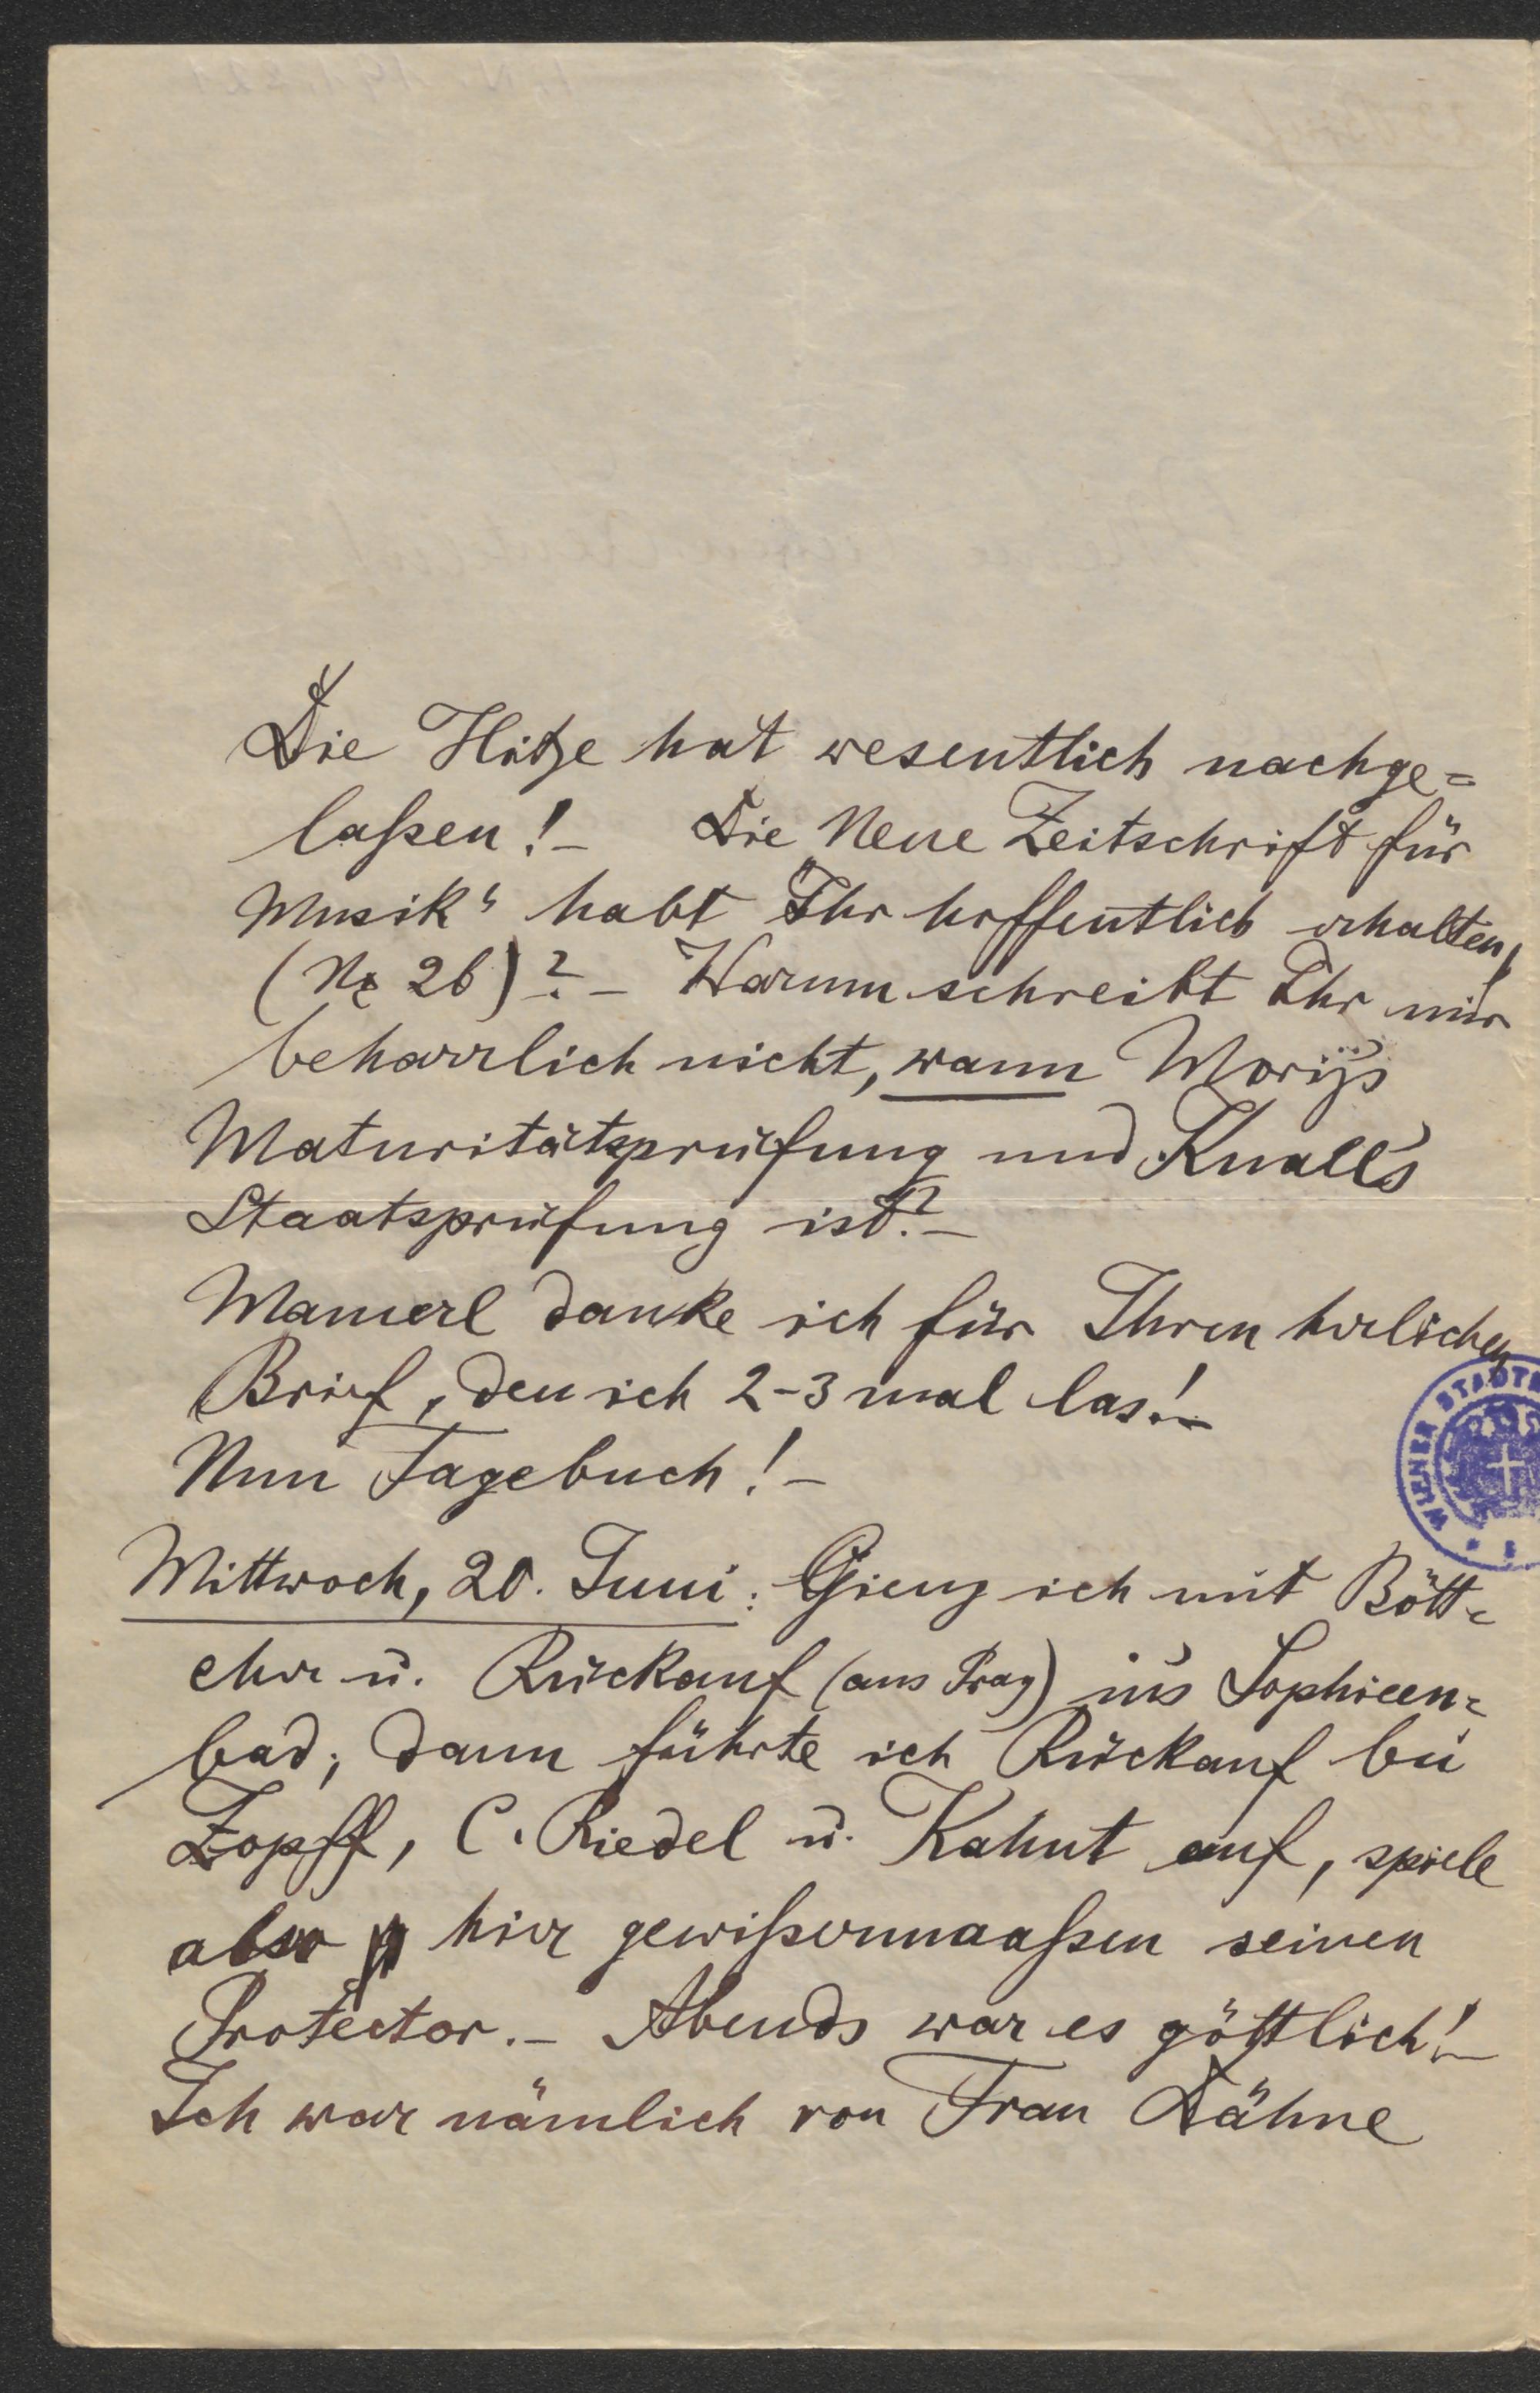 Die Hitze hat wesentlich nachge=
laßen!– Die Neue Zeitschrift für
Musik" habt Ihr hoffentlich erhalten,
(No 26)?– Warum schreibt Ihr mir
beharrlich nicht, wann Moriz's
Maturitätsprüfung und Knall's
Staatsprüfung ist?–
Mamerl danke ich für Ihren herlichen
Brief, den ich 2–3 mal las!–
Nun Tagebuch!–
Mittwoch, 20. Juni: Gieng ich mit Bött=
cher u. Rückauf (aus Prag) in's Sophieen=
bad; dann führte ich Rückauf bei
Zopff, C. Riedel u. Kahnt auf, spiele
also hier gewißermaaßen seinen
Protector.– Abends war es göttlich!–
Ich war nämlich von Frau Dähne
WIENER STADT